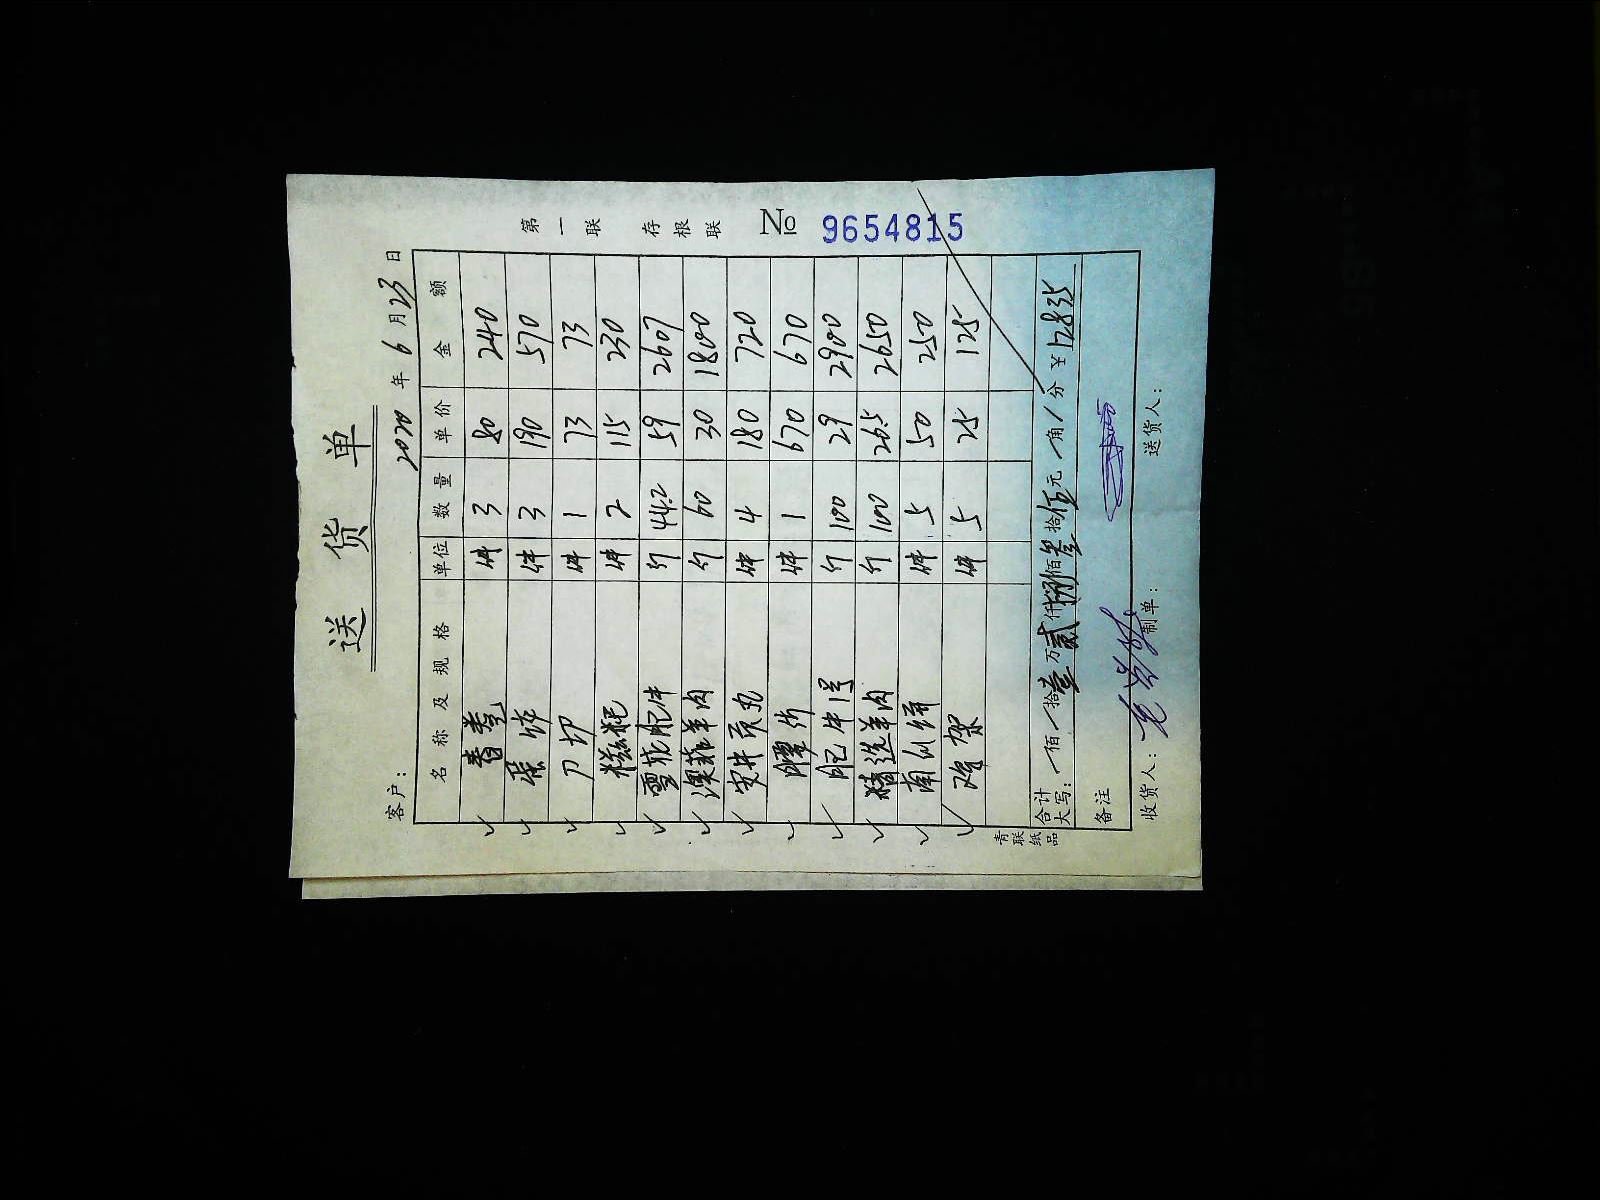 送货单
2020年6月23日
客户:
第一联 存根联 № 9654815
名称及规格 单位 数量 单价 金额
春卷 件 3 80 240
件 3 190 570
刀切 件 1 73 73
糍粑 件 2 115 230
雪花肥牛 斤 44.2 59 2607
澳菲羊肉 斤 60 30 1800
安井贡丸 件 4 180 720
件 1 670 670
肥牛1号 斤 100 29 2900
精选羊肉 斤 100 26.5 2650
南瓜饼 件 5 50 250
鸡架 件 5 25 125
合计大写: / 佰 / 拾壹万贰仟捌佰叁拾伍元 / 角 / 分 ¥12835
备注
收货人: 制单: 送货人:
青联纸品